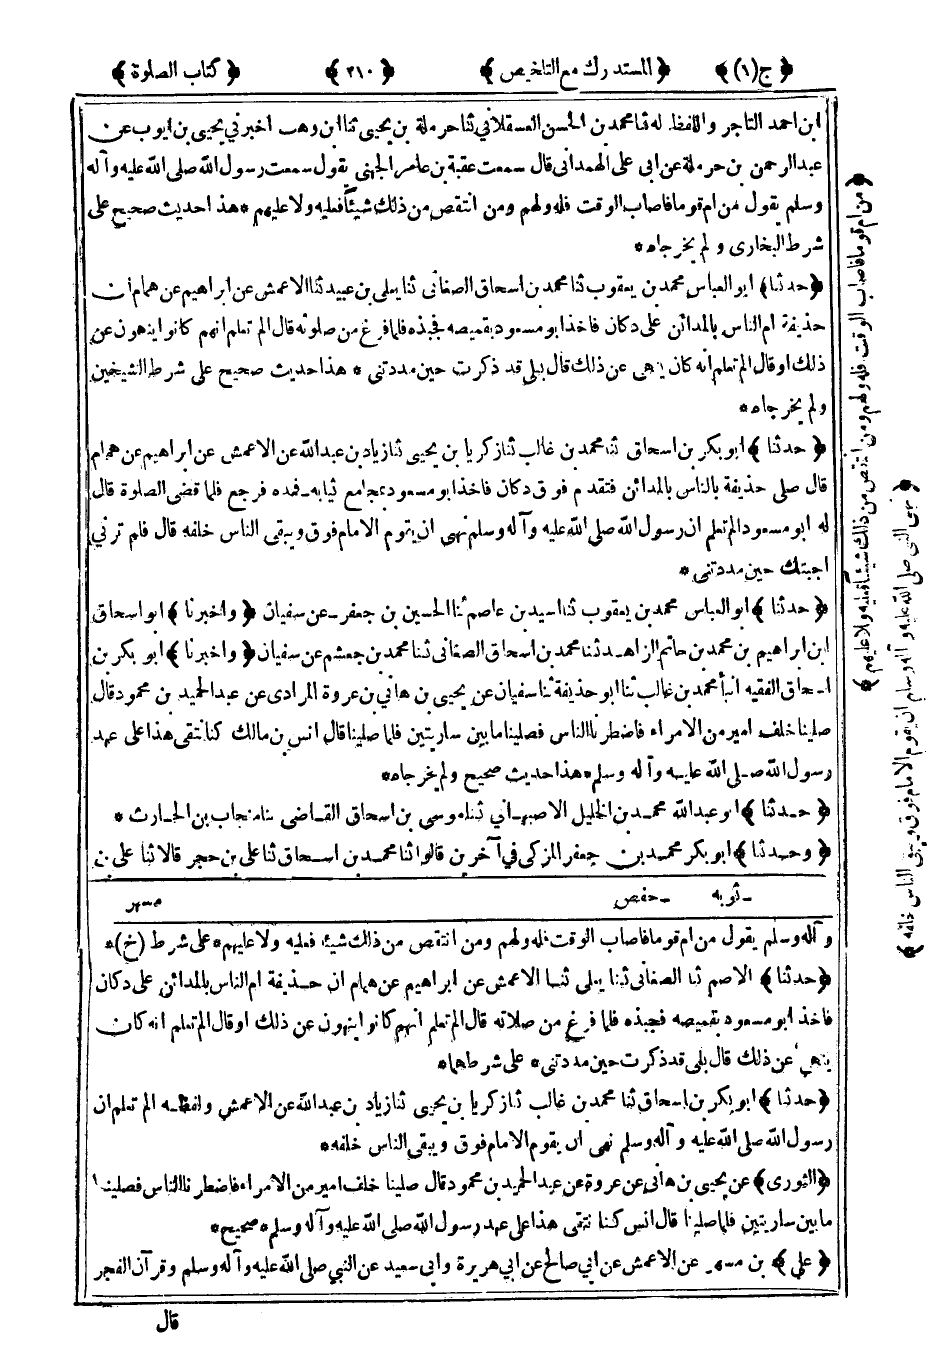 ﴿ ج (١) ﴾ ﴿ المستدرك مع التلخيص ﴾ ﴿ ٢١٠ ﴾ ﴿ كتاب الصلوة ﴾
ابن احمد التاجر واللفظ له ثنا محمد بن الحسن العسقلاني ثنا حرملة بن يحيى ثنا ابن وهب اخبرني يحيى بن ايوب عن
عبد الرحمن بن حرملة عن ابى على الهمدانى قال سمعت عقبة بن عامر الجهنى يقول سمعت رسول الله صلى الله عليه وآله
وسلم يقول من ام قوما فاصاب الوقت فله ولهم ومن انتقص من ذلك شيئا فعليه ولا عليهم * هذا حديث صحيح على
شرط البخارى ولم يخرجاه *
﴿ حدثنا ﴾ ابو العباس محمد بن يعقوب ثنا محمد بن اسحاق الصغانى ثنا يعلى بن عبيد ثنا الاعمش عن ابراهيم عن همام ان
حذيفة ام الناس بالمدائن على دكان فاخذ ابو مسعود بقميصه فجبذه فلما فرغ من صلوته قال الم تعلم انهم كانوا ينهون عن
ذلك او قال الم تعلم انه كان ينهى عن ذلك قال بلى قد ذكرت حين مددتنى * هذا حديث صحيح على شرط الشيخين
ولم يخرجاه *
﴿ حدثنا ﴾ ابو بكر بن اسحاق ثنا محمد بن غالب ثنا زكريا بن يحيى ثنا زياد بن عبد الله عن الاعمش عن ابراهيم عن همام
قال صلى حذيفة بالناس بالمدائن فتقدم فوق دكان فاخذ ابو مسعود بمجامع ثيابه فمده فرجع فلما قضى الصلوة قال
له ابو مسعود الم تعلم ان رسول الله صلى الله عليه وآله وسلم نهى ان يقوم الامام فوق ويبقى الناس خلفه قال فلم ترني
اجبتك حين مددتنى *
﴿ حدثنا ﴾ ابو العباس محمد بن يعقوب ثنا اسيد بن عاصم ثنا الحسين بن جعفر عن سفيان ﴿ واخبرنا ﴾ ابو اسحاق
ابن ابراهيم بن محمد بن حاتم الزاهد ثنا محمد بن اسحاق الصغانى ثنا محمد بن جعشم عن سفيان ﴿ واخبرنا ﴾ ابو بكر بن
اسحاق الفقيه انبأ محمد بن غالب ثنا ابو حذيفة ثنا سفيان عن يحيى بن هانى بن عروة المرادى عن عبد الحميد بن محمود قال
صلينا خلف امير من الامراء فاضطرنا الناس فصلينا ما بين ساريتين فلما صلينا قال انس بن مالك كنا نتقى هذا على عهد
رسول الله صلى الله عليه وآله وسلم * هذا حديث صحيح ولم يخرجاه *
﴿ حدثنا ﴾ ابو عبد الله محمد بن الخليل الاصبهاني ثنا موسى بن اسحاق القاضى ثنا منجاب بن الحارث *
﴿ وحدثنا ﴾ ابو بكر محمد بن جعفر المزكى في آخرين قالوا ثنا محمد بن اسحاق ثنا على بن حجر قالا ثنا على بن
ثوبه حفص مسهر
وآله وسلم يقول من ام قوما فاصاب الوقت فله ولهم ومن انتقص من ذلك شيئا فعليه ولا عليهم * على شرط (خ) *
﴿ حدثنا ﴾ الاصم ثنا الصغانى ثنا يعلى ثنا الاعمش عن ابراهيم عن همام ان حذيفة ام الناس بالمدائن على دكان
فاخذ ابو مسعود بقميصه فجبذه فلما فرغ من صلاته قال الم تعلم انهم كانوا ينهون عن ذلك او قال الم تعلم انه كان
ينهى عن ذلك قال بلى قد ذكرت حين مددتنى * على شرطهما *
﴿ حدثنا ﴾ ابو بكر بن اسحاق ثنا محمد بن غالب ثنا زكريا بن يحيى ثنا زياد بن عبد الله عن الاعمش ولفظه الم تعلم ان
رسول الله صلى الله عليه وآله وسلم نهى ان يقوم الامام فوق ويبقى الناس خلفه *
﴿ الثورى ﴾ عن يحيى بن هانى عن عروة عن عبد الحميد بن محمود قال صلينا خلف امير من الامراء فاضطرنا الناس فصلينا
ما بين ساريتين فلما صلينا قال انس كنا نتقى هذا على عهد رسول الله صلى الله عليه وآله وسلم * صحيح *
﴿ على ﴾ بن مسهر عن الاعمش عن ابي صالح عن ابي هريرة وابى سعيد عن النبي صلى الله عليه وآله وسلم وقرآن الفجر
قال
﴿ من ام قوما فاصاب الوقت فله ولهم ومن انتقص من ذلك شيئا فعليه ولا عليهم ﴾
﴿ نهى النبى صلى الله عليه وآله وسلم ان يقوم الامام فوق ويبقى الناس خلفه ﴾